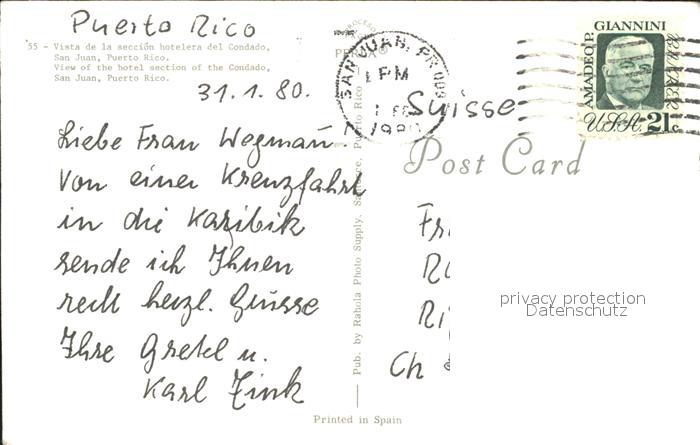 Puerto Rico
55 - Vista de la sección hotelera del Condado,
San Juan, Puerto Rico.
View of the hotel section of the Condado,
San Juan, Puerto Rico.
31.1.80.
Liebe Frau Wegmann!
Von einer Kreuzfahrt
in die Karibik
sende ich Ihnen
recht herzl. Grüsse
Ihre Gretel u.
Karl Fink
Pub. by Rahola Photo Supply. Santurce, Puerto Rico
SAN JUAN, PR 009
PM
1 FEB
1980
AMADEO P. GIANNINI
BANKER
U.S.A. 21c
Suisse
Post Card
Fr
Ri
Ch
privacy protection
Datenschutz
Printed in Spain